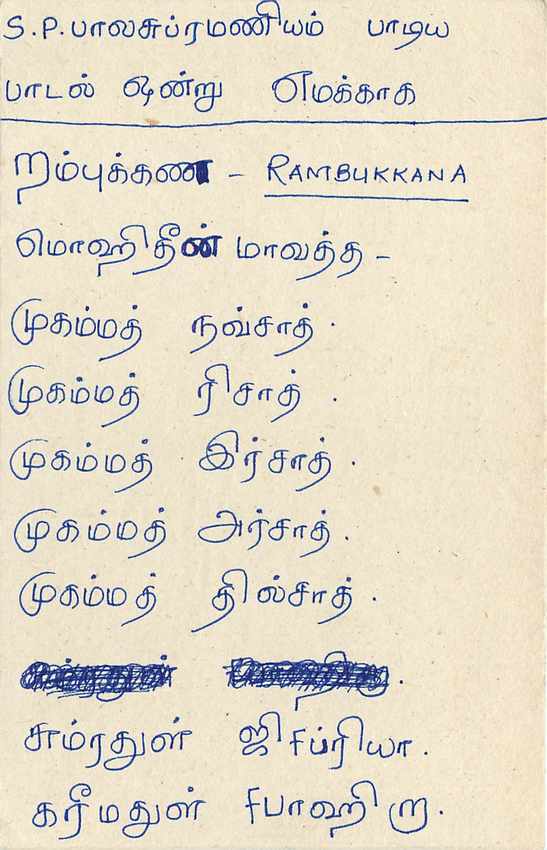 S.P.பாலசுப்ரமணியம் பாடிய
பாடல் ஒன்று எமக்காக
றம்புக்கண - RAMBUKKANA
மொஹிதீன் மாவத்த -
முகம்மத் நவ்சாத்.
முகம்மத் ரிசாத்.
முகம்மத் இர்சாத்.
முகம்மத் அர்சாத்.
முகம்மத் தில்சாத்.
சும்ரதுள் ஜிfப்ரியா.
கரீமதுள் fபாஹிறா.